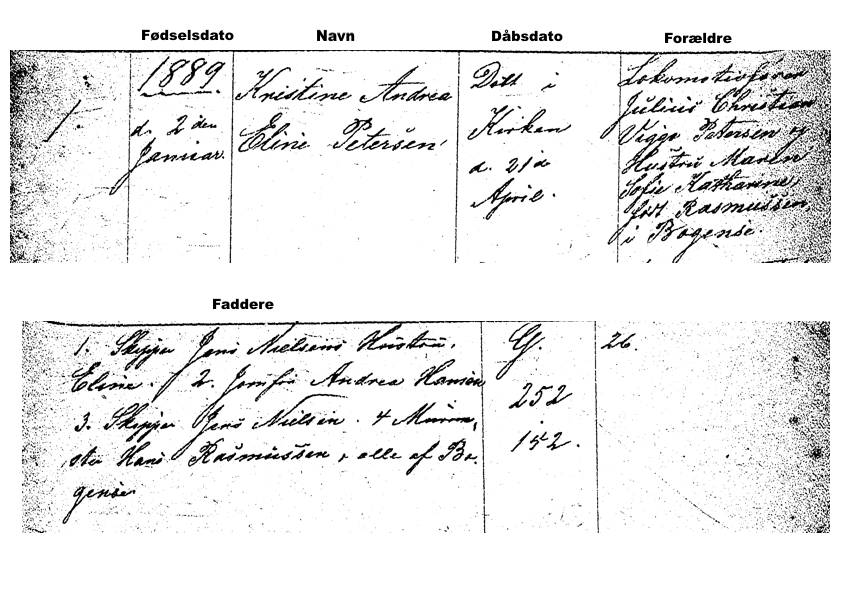 Fødselsdato Navn Dåbsdato Forældre
1.
1889
d. 2den
Januar.
Kristine Andrea
Eline Petersen
Døbt i
Kirken
d. 21de
April.
Lokomotivfører
Julius Christian
Viggo Petersen og
Hustru Maren
Sofie Katharine,
født Rasmussen,
i Bogense.
Faddere
1. Skipper Jens Nielsens Hustru,
Eline. 2. Jomfru Andrea Hansen
3. Skipper Jens Nielsen. 4 Murme,
ster Hans Rasmussen, alle af Bo-
gense
G.
252
152.
26.